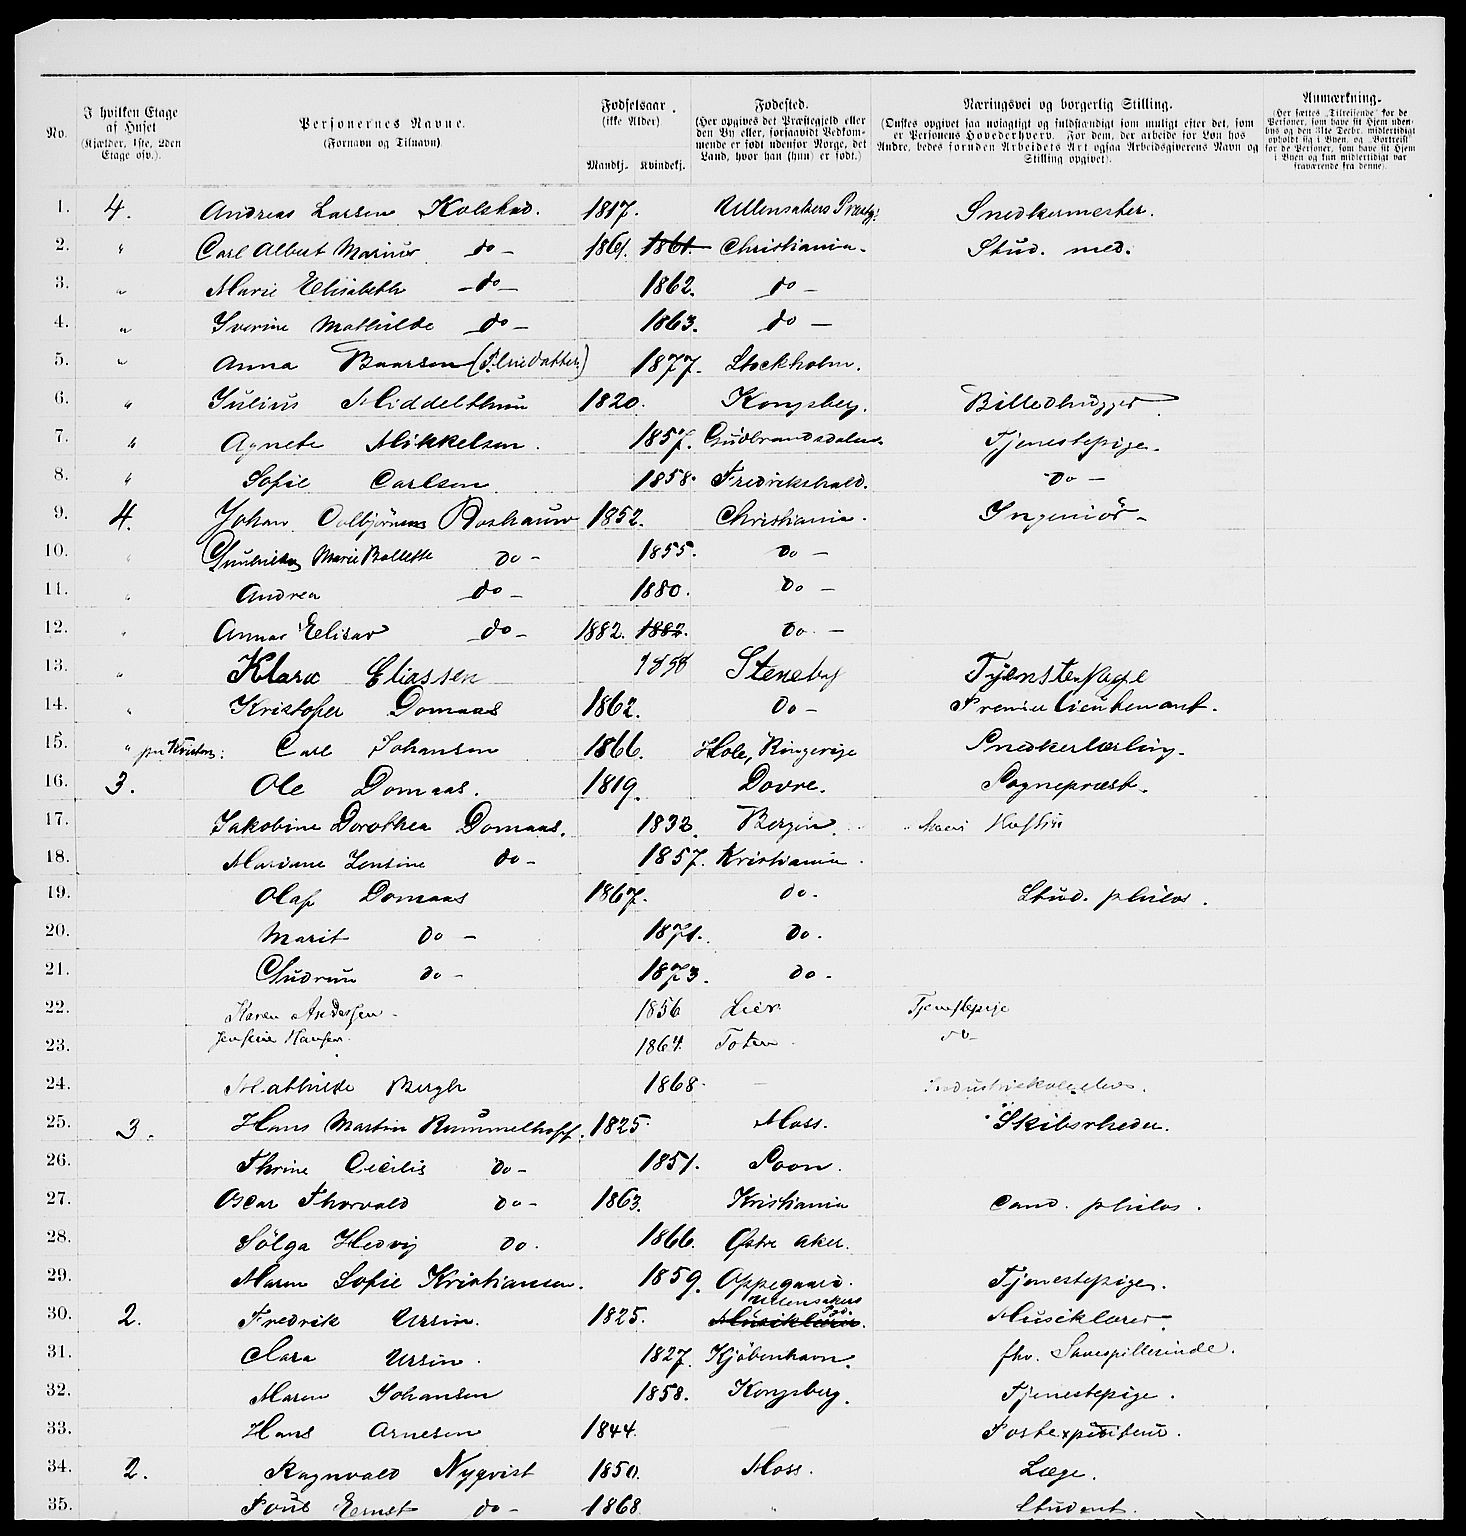 No. I hvilken Etage af Huset (Kjælder, 1ste, 2den Etage osv.). Personernes Navne. (Fornavn og Tilnavn) Fødselsaar. (ikke Alder) Mandkj. Kvindekj. Fødested. (Her opgives det Præstegjeld eller den By eller, forsaavidt Vedkommende er født udenfor Norge, det Land, hvor han (hun) er født.) Næringsvei og borgerlig Stilling. (Ønskes opgivet saa nøiagtigt og fuldstændigt som muligt efter det, som er Personens Hovederhverv. For dem, der arbeide for Løn hos Andre, bedes foruden Arbeidets Art ogsaa Arbeidsgiverens Navn og Stilling opgivet). Anmærkning. (Her sættes „Tilreisende" for de Personer, som have sit Hjem udenbys og den 31te Decbr. midlertidigt opholdt sig i Byen, og „Bortreist" for de Personer, som have sit Hjem i Byen og kun midlertidigt var fraværende fra denne).
1. 4. Andreas Larsen Kolstad. 1817. Ullensakers Præstg. Snedkermester.
2. " Carl Albert Marius do - 1861. 1861. Christiania. Stud. med.
3. " Marie Elisabeth - do - 1862. do -
4. " Iverine Mathilde do - 1863. do -
5. " Anna Baarsen (Pleiedatter) 1877. Stockholm.
6. " Julius Middelthun 1820. Kongsberg. Billedhugger
7. " Agnete Mikkelsen. 1857. Gudbrandsdalen. Tjenestepige.
8. " Sofie Carlsen 1858. Fredrikshald. do -
9. 4. Johan 1852. Christiania. Ingeniör -
10. " Marie do - 1855. do -
11. " Andrea do - 1880. do -
12. " do - 1882. 1882. do. -
13. " Klara Eliassen 1858 Steneby Tjenstepige
14. " Kristofer Domaas 1862. do - Premierlieutenant.
15. " Carl Johansen 1866. Hole, Ringerige Snedkerlærling.
16. 3. Ole Domaas. 1819. Dovre. Sognepræst.
17. Jakobine Dorothea Domaas. 1832. Bergen.
18. Mariane Jensine do - 1857. Kristiania.
19. Olaf Domaas 1867. do. Stud. philos.
20. Marit do - 1871. do.
21. Gudrun do - 1873. do.
22. Karen Andersen 1856 Lier Tjenstepige
23. Hansen 1864. Toten do
24. Mathilde Bergh 1868. - Industriskoleelev.
25. 3. Hans Martin Rummelhoff. 1825. Moss. Skibsrheder.
26. Thrine Cecilie do - 1851. Soon.
27. Oscar Thorvald do - 1863. Kristiania Cand. philos.
28. Sölga Hedvig do. 1866. Østre Aker.
29. Maren Sofie Kristiansen. 1859. Oppegaard. Tjenestepige.
30. 2. Fredrik Ursin. 1825. Ullensakers Musiklærer. Musiklærer.
31. Clara Ursin. 1827. Kjöbenhavn. fhv. Skuespillerinde.
32. Maren Johansen 1858. Kongsberg. Tjenestepige.
33. Hans Arnesen 1844. - Postexpediteur.
34. 2. Ragnvald Nyqvist 1850. Moss. Læge.
35. Poul Ernst do - 1868 " Student.